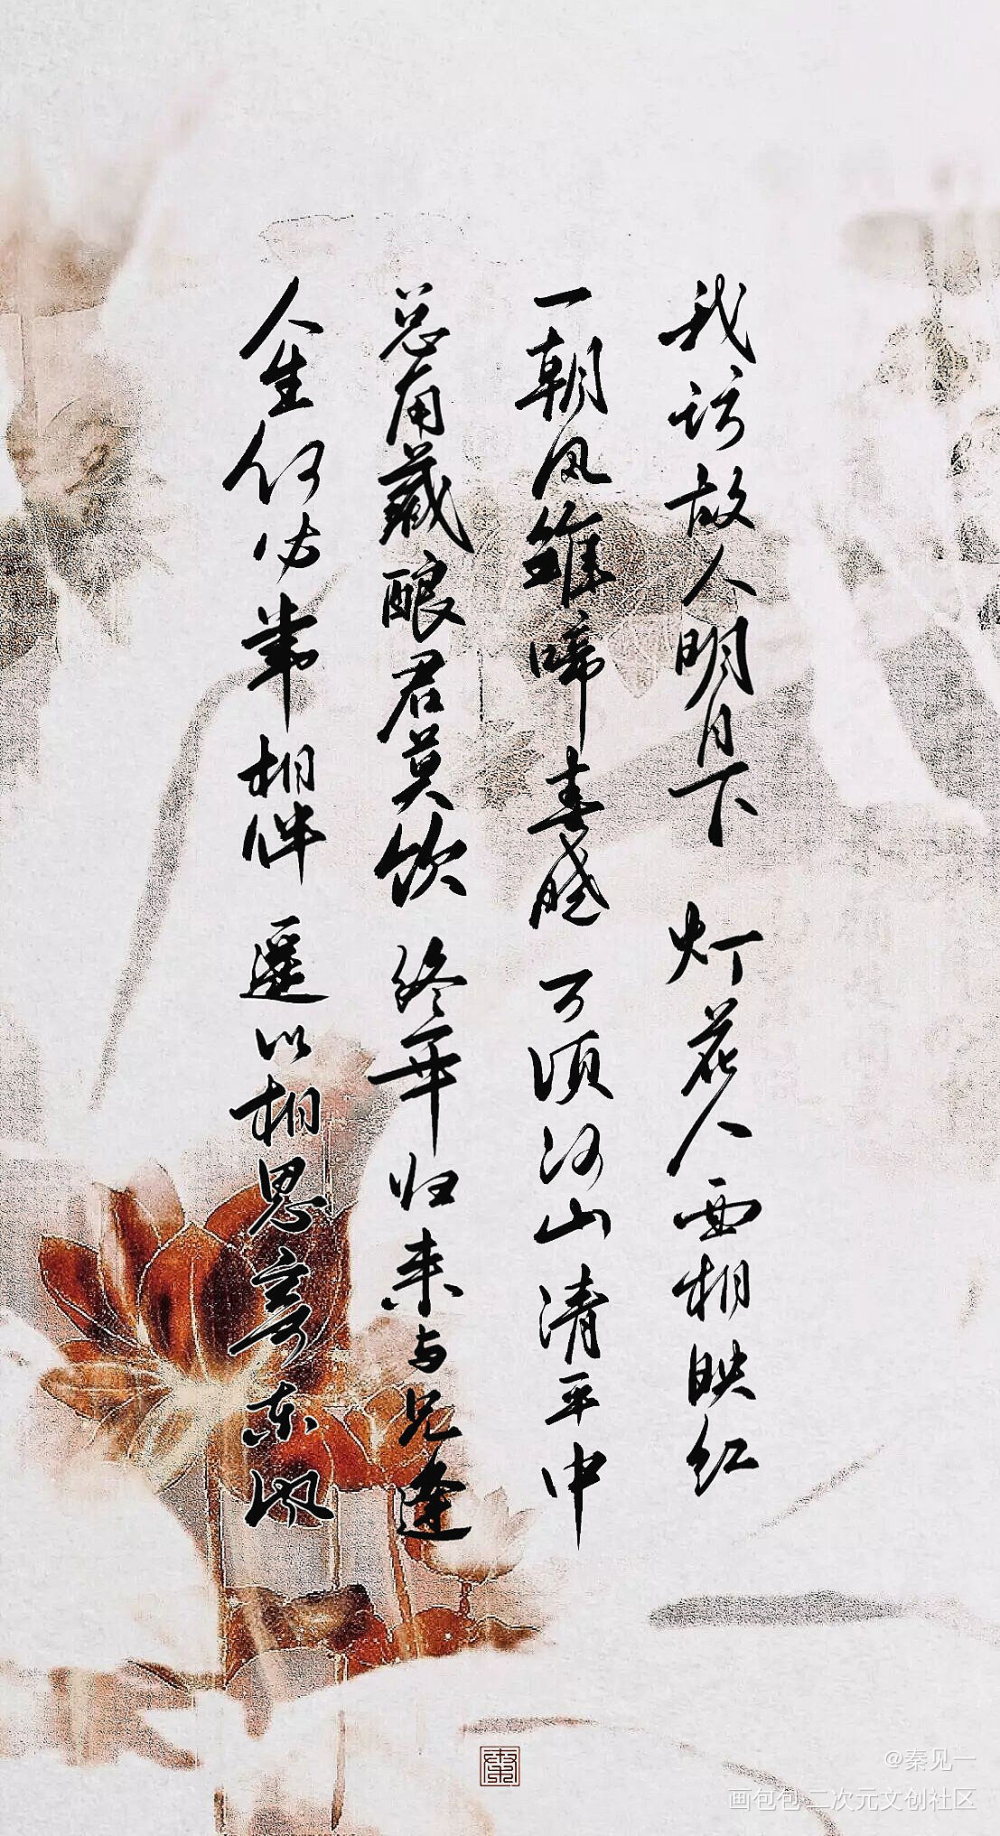 我访故人明月下 灯花人面相映红
一朝风雏啼春晓 万顷河山清平中
总有藏酿君莫饮 终年归来与兄逢
人生何必常相伴 遥以相思寄东风
@秦见一
画包包 二次元文创社区